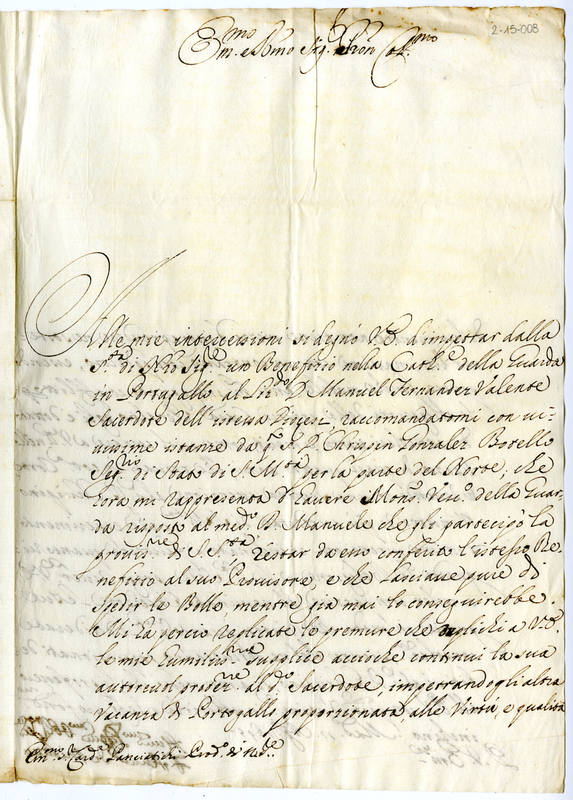 2-15-008
Em.mo e Rmo Sig.r Pron Col.mo
Alle mie intercessioni si degnò V.E. d'impetrar dalla
S.tà di Nro Sig.re un Beneficio nella Cath.e della Guarda
in Portugallo al D. Manuel Fernandez Valente
Sacerdote dell'istessa Diocesi, raccomandatomi con vi-
vissime istanze da q. S. D. Chrispin Gonzalez Botello
Seg.rio di Stato di S. M.tà per la parte del Norte; che
hora mi rappresenta d'havere Mons. Vesc.o della Guar-
da risposto al med.o D. Manuele che gli partecipò la
provis.ne di S. S.tà restar da esso conferito l'istesso Be-
neficio al suo Provisore, e che lasciasse pure di
spedir le Bolle, mentre già mai lo conseguirebbe.
Mi fa perciò replicate le premure che supplichi a V.E.
le mie humilis.me suppliche acciochè continui la sua
autorevol al d.o Sacerdote, impetrandogli altra
Vacanza di Portogallo proportionata alle Virtù, e qualità
Em.mo S. Card. Panciatichi Prod.o di